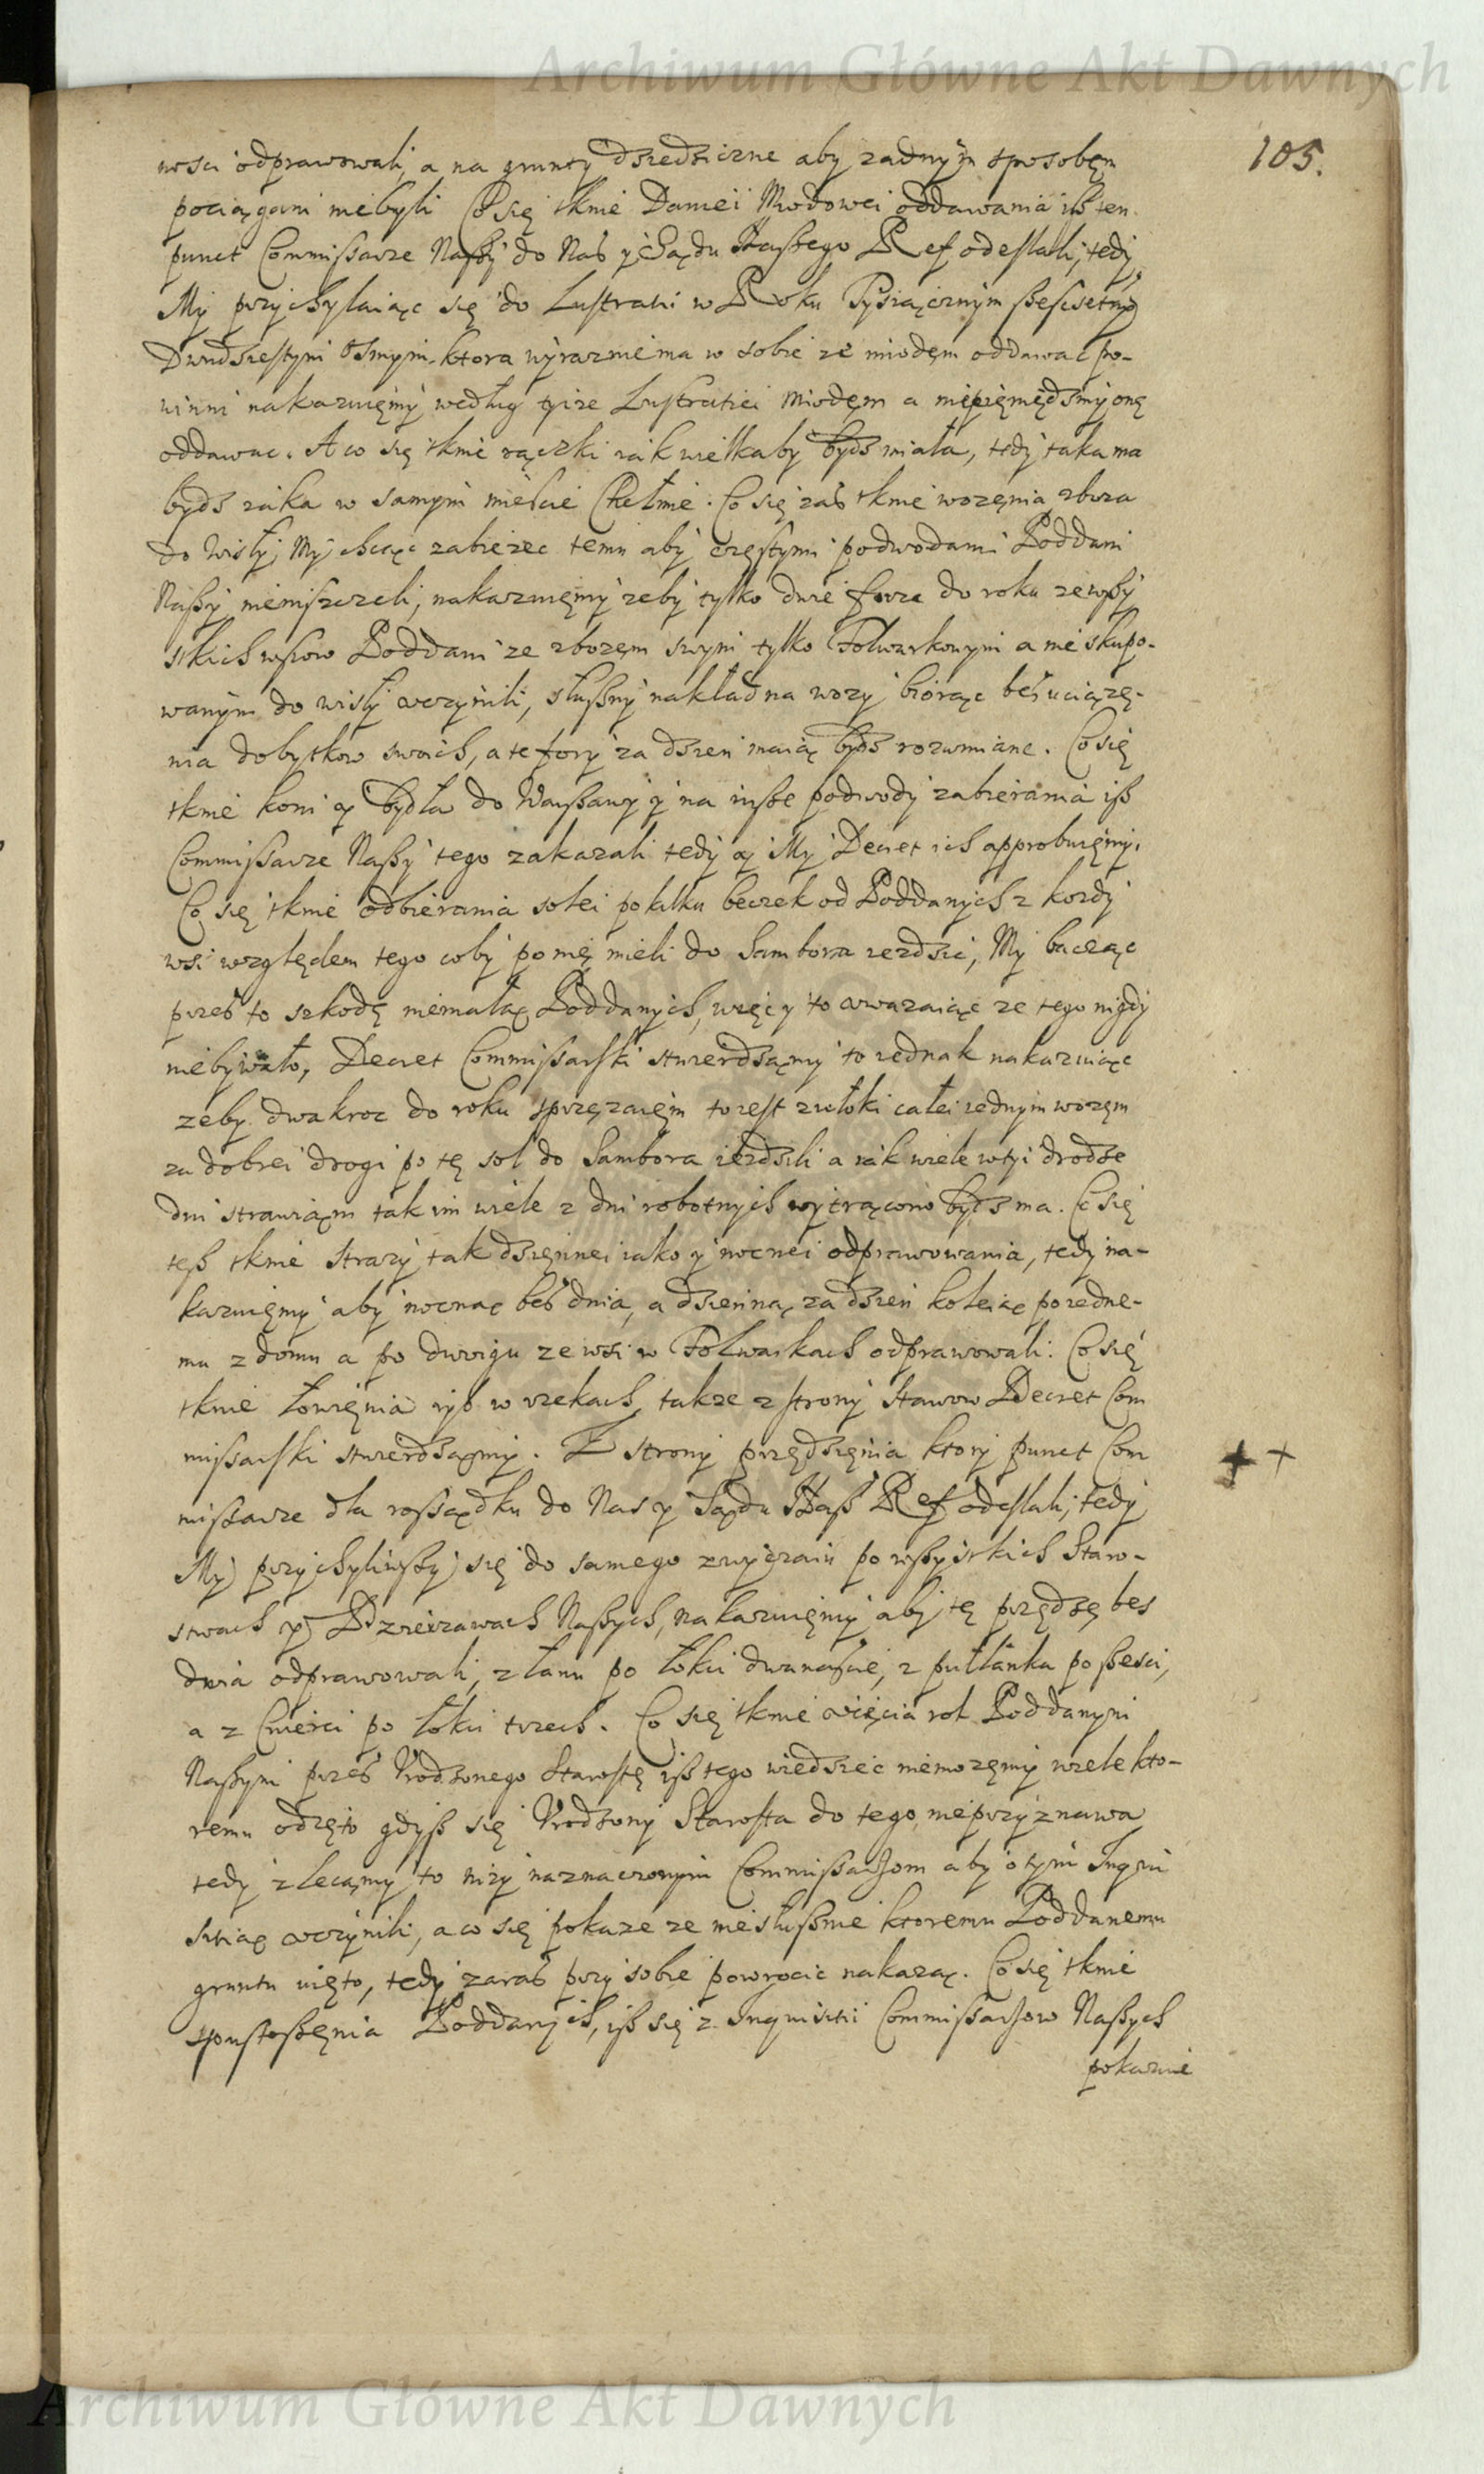 Archiwum Główne Akt Dawnych
105.
nosci odprawowali, a na grunty dziedziczne aby zadnym sposobęm
pociągani niebyli. Co się tknie Daniei Miodowei oddawania iß ten
punct Commissarze Naßy do Nas y Sądu Naßego Ref. odesłali, tedy
My przychylaiąc się do Lustratii w Roku Tysiącznym szescsetnym
Dwudziestym Osmym, ktora wyraznie ma w sobie ze miodęm oddawac po-
winni nakazuięmy według tyize Lustratiei miodęm a niepięniędzmi onę
oddawac. A co się tknie rączki iak wielkaby bydz miała, tedy taka ma
bydz iaka w samym miescie Chełmie. Co się zas tknie wozęnia zboza
do Wisły, My chcąc zabiezec temu aby częstymi podwodami Poddani
Naßy nieniszczeli, nakazuięmy zeby tylko dwie fore do roku ze wßy
stkich wsiow Poddani ze zbozęm swym tylko Folwarkowym a nie skupo-
wanym do wisły uczynili, słußny nakład na wozy biorąc bes uciązę-
nia dobytkow swoich, a te fory za dzien maią bydz rozumiane. Co się
tknie koni y bydła do Warßawy y na inße podwody zabierania iß
Commissarze Naßy tego zakazali tedy y My Decret ich approbuięmy.
Co się tknie odbierania solei po kilku beczek od Poddanych z kozdy
wsi względem tego coby po nię mieli do Sambora iezdzic, My bacząc
przes to szkodę niemałą Poddanych, więc y to uwazaiąc ze tego nigdy
niebywało, Decret Commissarski stwierdzamy to iednak nakazuiąc
zeby dwakroc do roku sprzęzaięm to iest z włoki całei iednym wozęm
za dobrei drogi po tę sol do Sambora iezdzili a iak wiele wtyi drodze
dni strawią im tak im wiele z dni robotnych wytrącono bydz ma. Co się
teß tknie Strazy tak dzięnnei iako y nocnei odprawowania, tedy na-
kazuięmy aby nocną bes dnia, a dzienną za dzień koleią po iedne-
mu z domu a po dwoigu ze wsi w Folwarkach odprawowali. Co się
tknie łowięnia ryb w rzekach, takze z strony Stawow Decret Com
missarski stwierdzamy. Z strony przędzięnia ktory punct Com
missarze dla rossądku do Nas y Sądu Naß Ref odesłali, tedy
My przychyliwßy się do samego zwyczaiu po wßystkich Staro-
stwach y Dzierzawach Naßych, nakazuięmy aby tę przędzę bes
dnia odprawowali, z łanu po łokci dwanascie, z pułłanku po ßesci,
a z Cwierci po łokci trzech. Co się tknie uięcia rol Poddanym
Naßym przes Urodzonego Starostę iß tego wiedziec niemozęmy wiele kto-
remu odięto gdyß się Urodzony Starosta do tego nieprzyznawa
tedy zlecamy to nizy naznaczonym Commissarzom aby o tym Inqui
sitią uczynili, a co się pokaze ze niesłußnie ktoremu Poddanemu
gruntu uięto, tedy zaras przy sobie powrocic nakazą. Co się tknie
spustoßęnia Poddanych, iß się z Inquisitii Commissarzow Naßych
pokazuie
Archiwum Główne Akt Dawnych